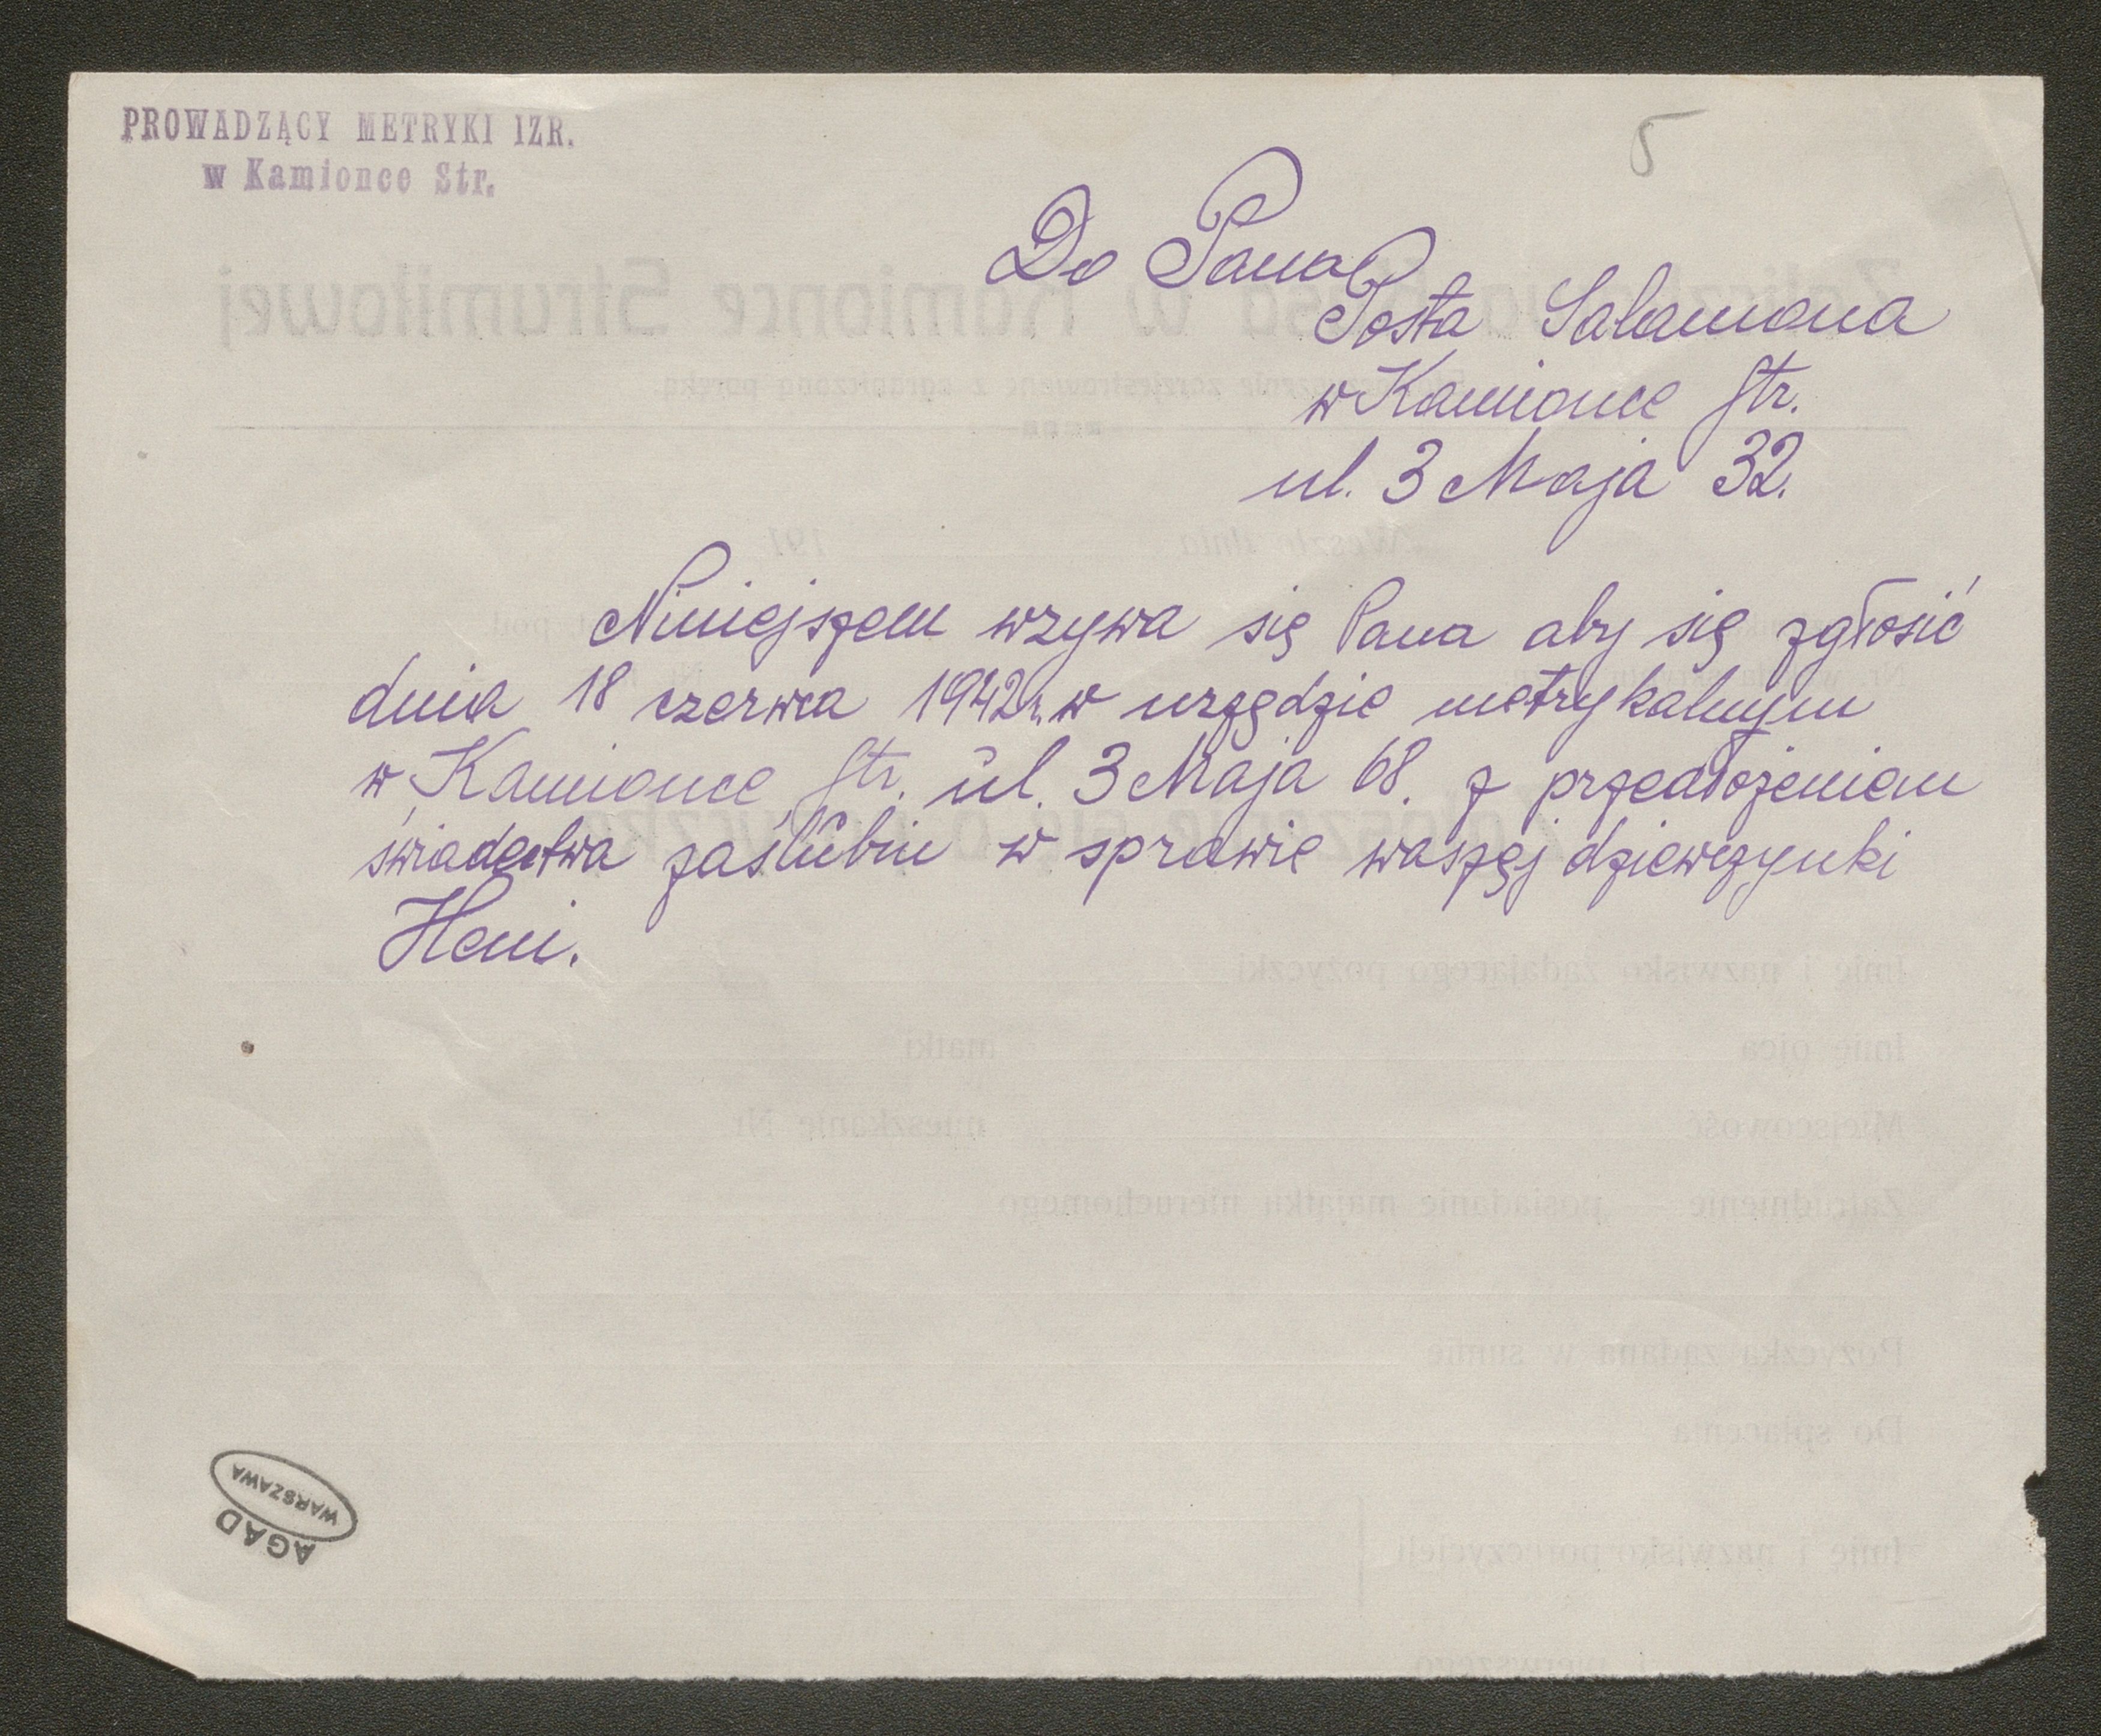 PROWADZĄCY METRYKI IZR.
w Kamionce Str.
5
Do Pana
Posta Salamona
w Kamionce Str.
ul. 3 Maja 32.
Niniejszem wzywa się Pana aby się zgłosić
dnia 18 czerwca 1942 r. w urzędzie metrykalnym
w Kamionce Str. ul. 3 Maja 68. z przedłożeniem
świadectwa zaślubin w sprawie waszej dziewczynki
Heni.
AGAD
WARSZAWA